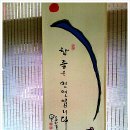 참 좋은 인연입니다